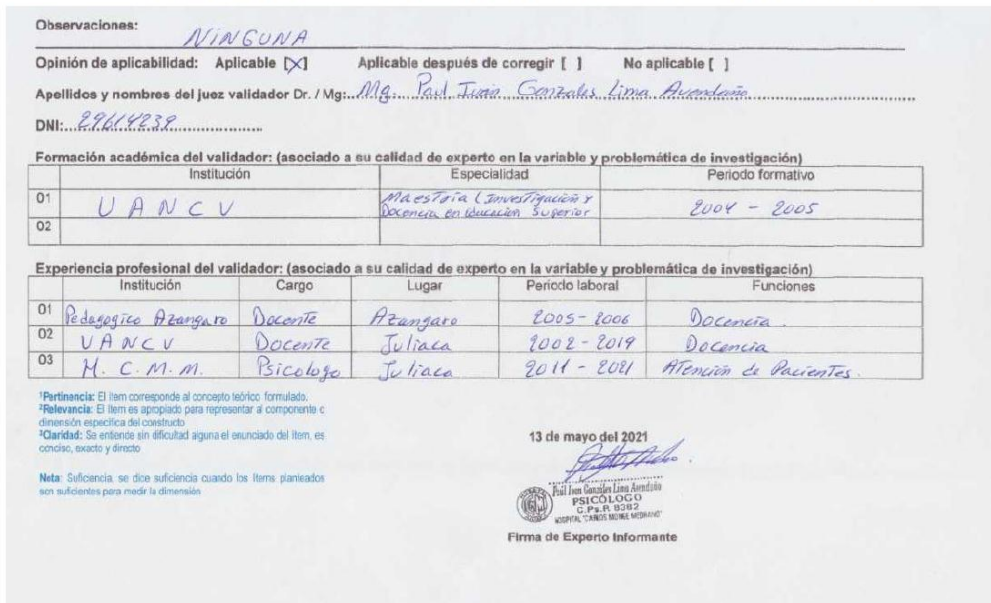 Observaciones:
NINGUNA
Opinión de aplicabilidad: Aplicable [X] Aplicable después de corregir [ ] No aplicable [ ]
Apellidos y nombres del juez validador Dr. / Mg:.. Mg. Paul Iván Gonzales Lima Avendaño
DNI:.. 29614239
Formación académica del validador: (asociado a su calidad de experto en la variable y problemática de investigación)
Institución Especialidad Periodo formativo
01 UANCV Maestria (Investigación y Docencia en Educación Superior 2004 - 2005
02
Experiencia profesional del validador: (asociado a su calidad de experto en la variable y problemática de investigación)
Institución Cargo Lugar Periodo laboral Funciones
01 Pedagogico Azangaro Docente Azangaro 2005-2006 Docencia.
02 UANCV Docente Juliaca 2002-2019 Docencia
03 H. C. M. M. Psicologo Juliaca 2011 - 2021 Atención de Pacientes.
¹Pertinencia: El ítem corresponde al concepto teórico formulado.
²Relevancia: El ítem es apropiado para representar al componente o
dimensión específica del constructo
³Claridad: Se entiende sin dificultad alguna el enunciado del ítem, es
conciso, exacto y directo
Nota: Suficiencia, se dice suficiencia cuando los ítems planteados
son suficientes para medir la dimensión
13 de mayo del 2021
Paúl Ivan Gonzáles Lima Avendaño
PSICÓLOGO
C.Ps.P. 8382
HOSPITAL "CARLOS MONGE MEDRANO"
Firma de Experto Informante